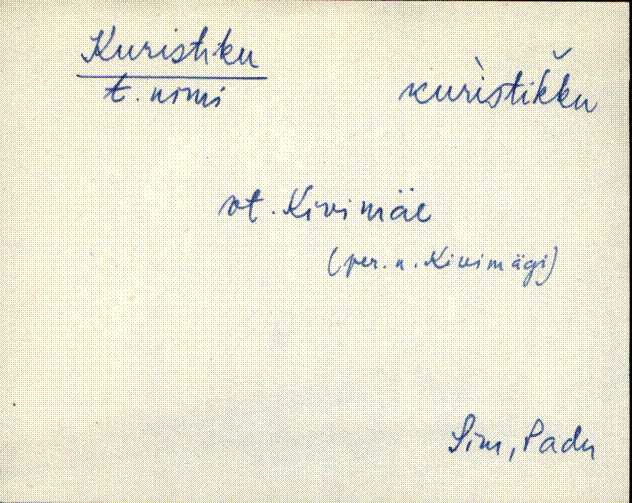 Kuristiku
t. nimi
kuri̇̀stik̆ku
vt. Kivimäe
(per. n. Kivimägi)
Sim, Padu